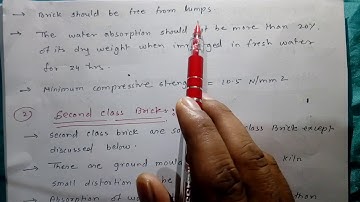 → Brick should be free from lumps
→ The water absorption should be more than 20%
of its dry weight when im ged in fresh water
for 24 hrs.
→ Minimum compressive stren = 10.5 N/mm2
② Second class Bricks:
→ second class brick are sa class Brick except
discussed below.
→ These are ground mou kiln
small distortion the
→ Absorption of w than